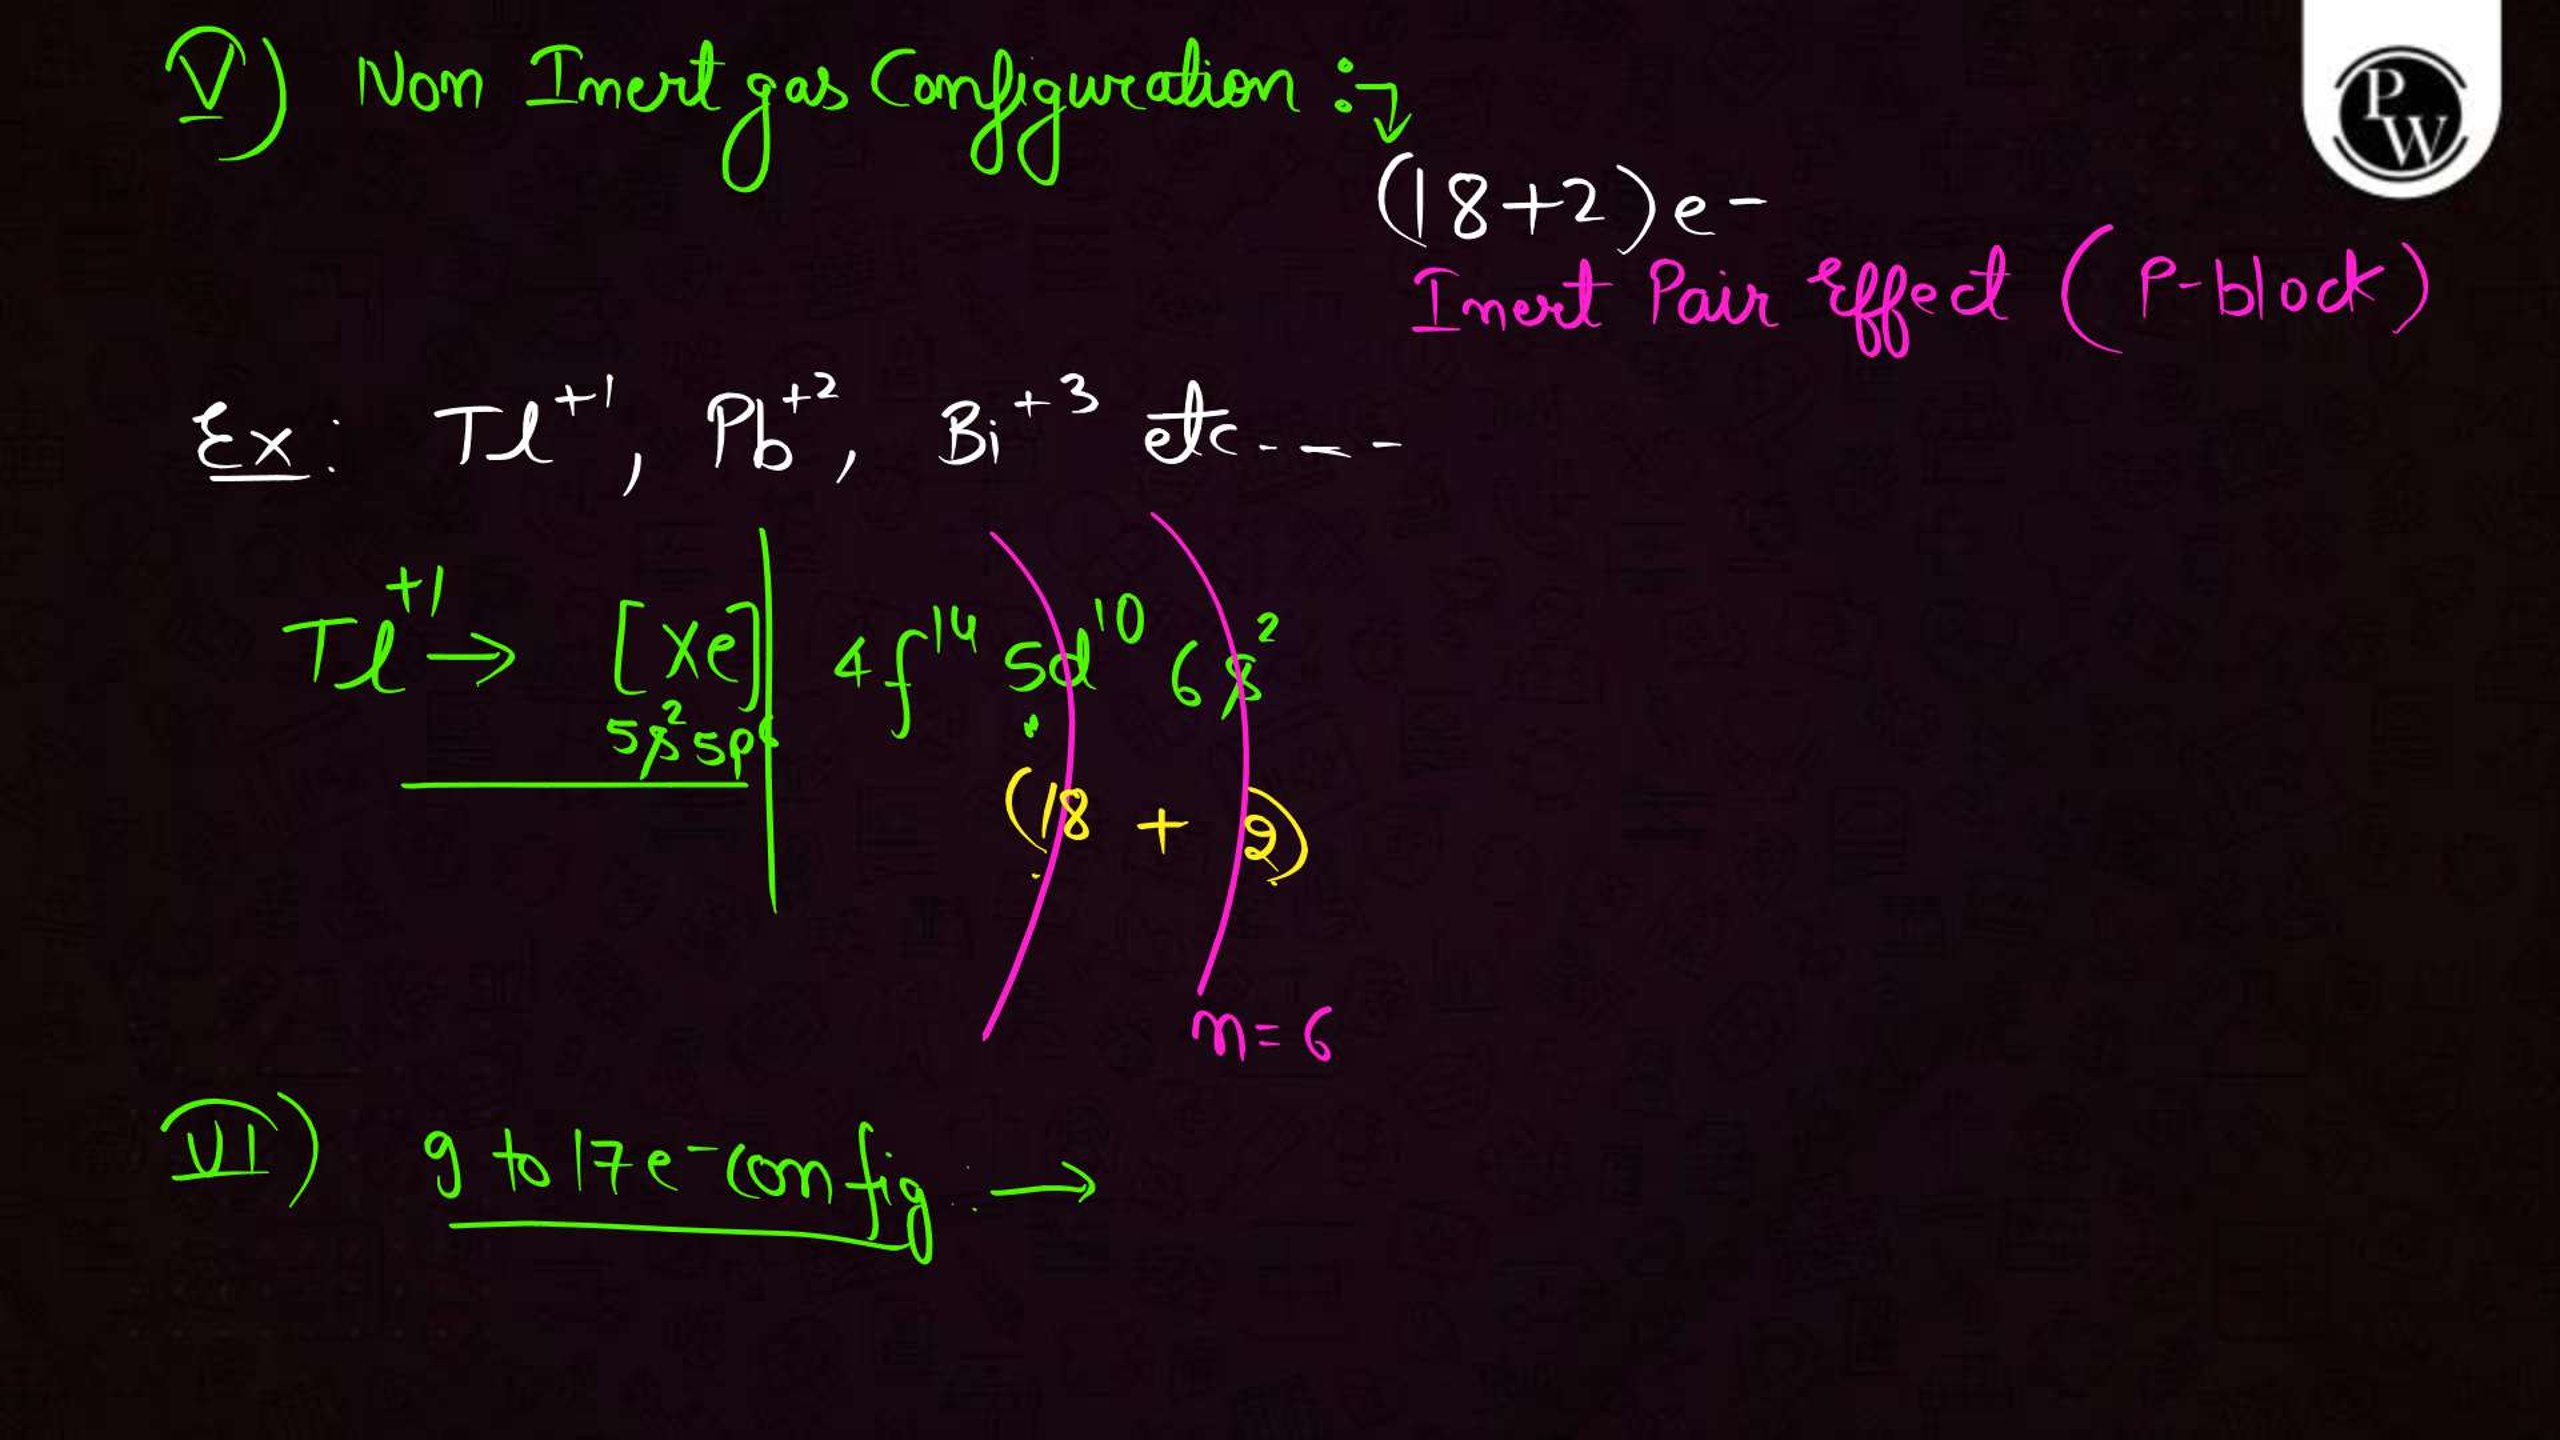 V) Non Inert gas Configuration :→
(18+2)e-
Inert Pair Effect (P-block)
Ex: Tl+1, Pb+2, Bi+3 etc----
Tl+1 → [Xe] 4f14 5d10 6s2
5s2 5p6
(18 + 2)
n=6
VI) 9 to 17e- config. →
PW